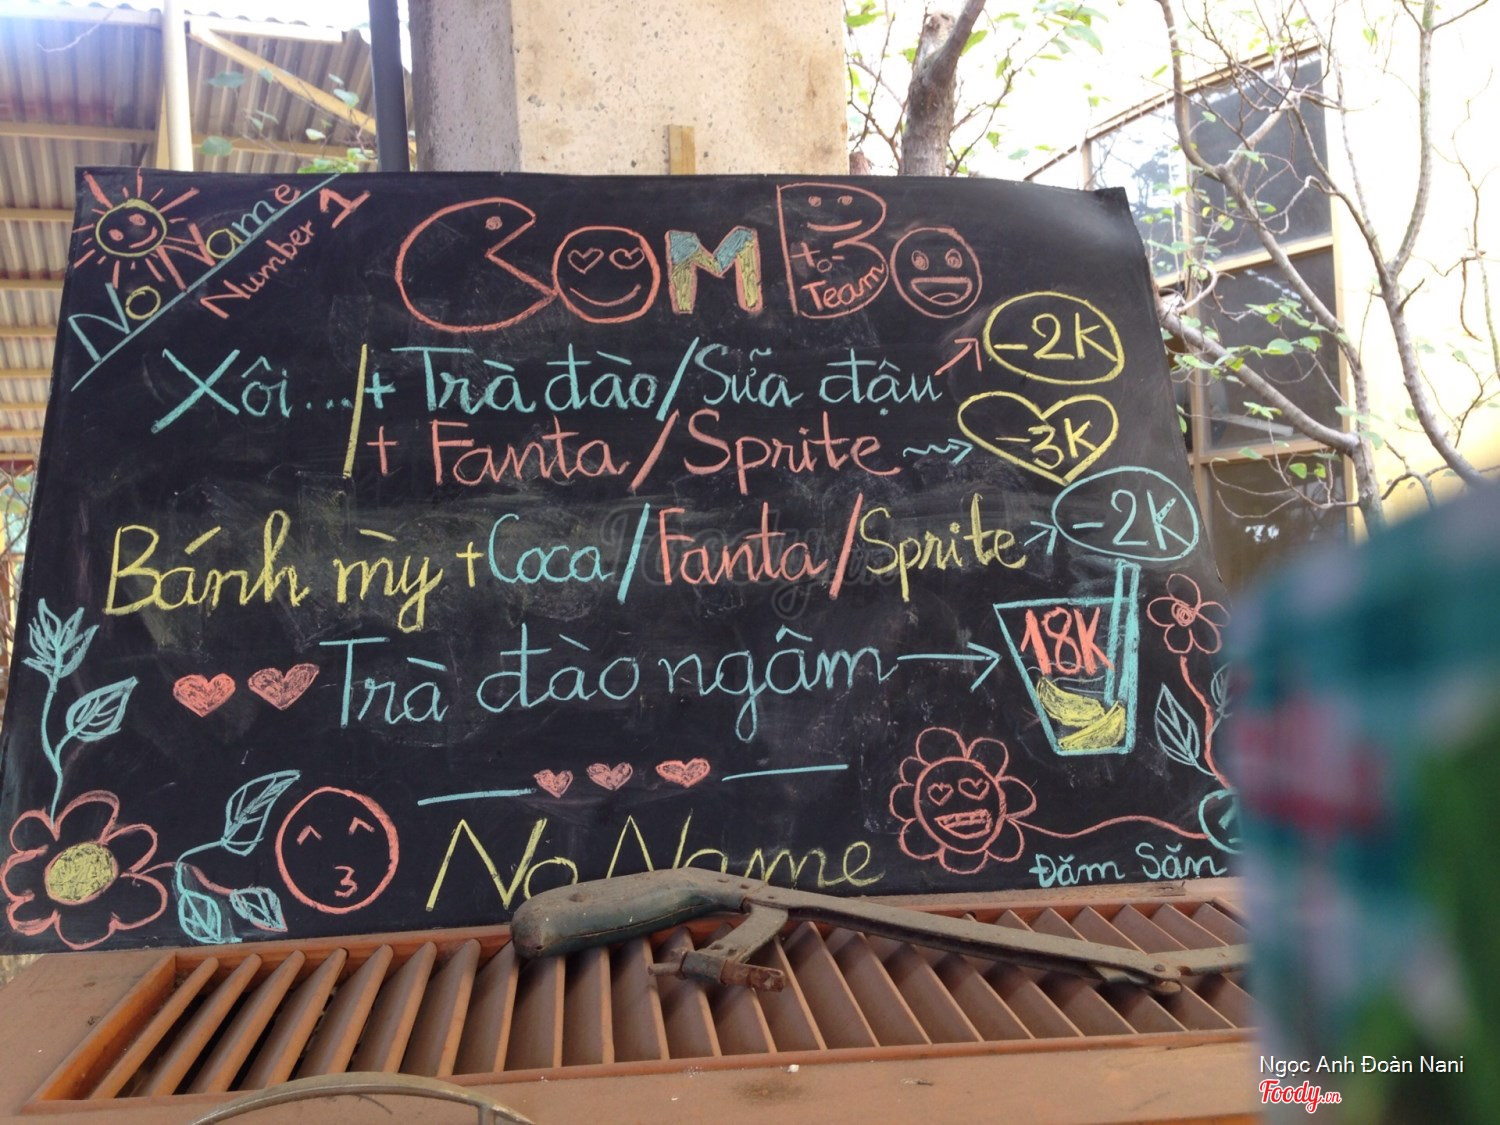 No Name
Number 1
ComBo
to
Team
Xôi...+ Trà đào/Sữa đậu
-2K
+ Fanta/Sprite
-3K
Bánh mỳ + Coca/Fanta/Sprite
-2K
Trà đào ngâm
18K
No Name
Đăm Săn
Foody.vn
Ngọc Anh Đoàn Nani
Foody.vn